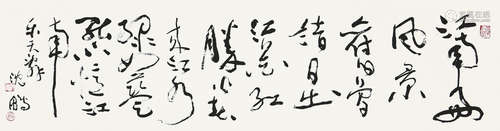 江南好
風景
舊曾
諳日出
江花紅
勝火春
來江水
綠如藍
能不憶江
南
樂天辭
沈鵬